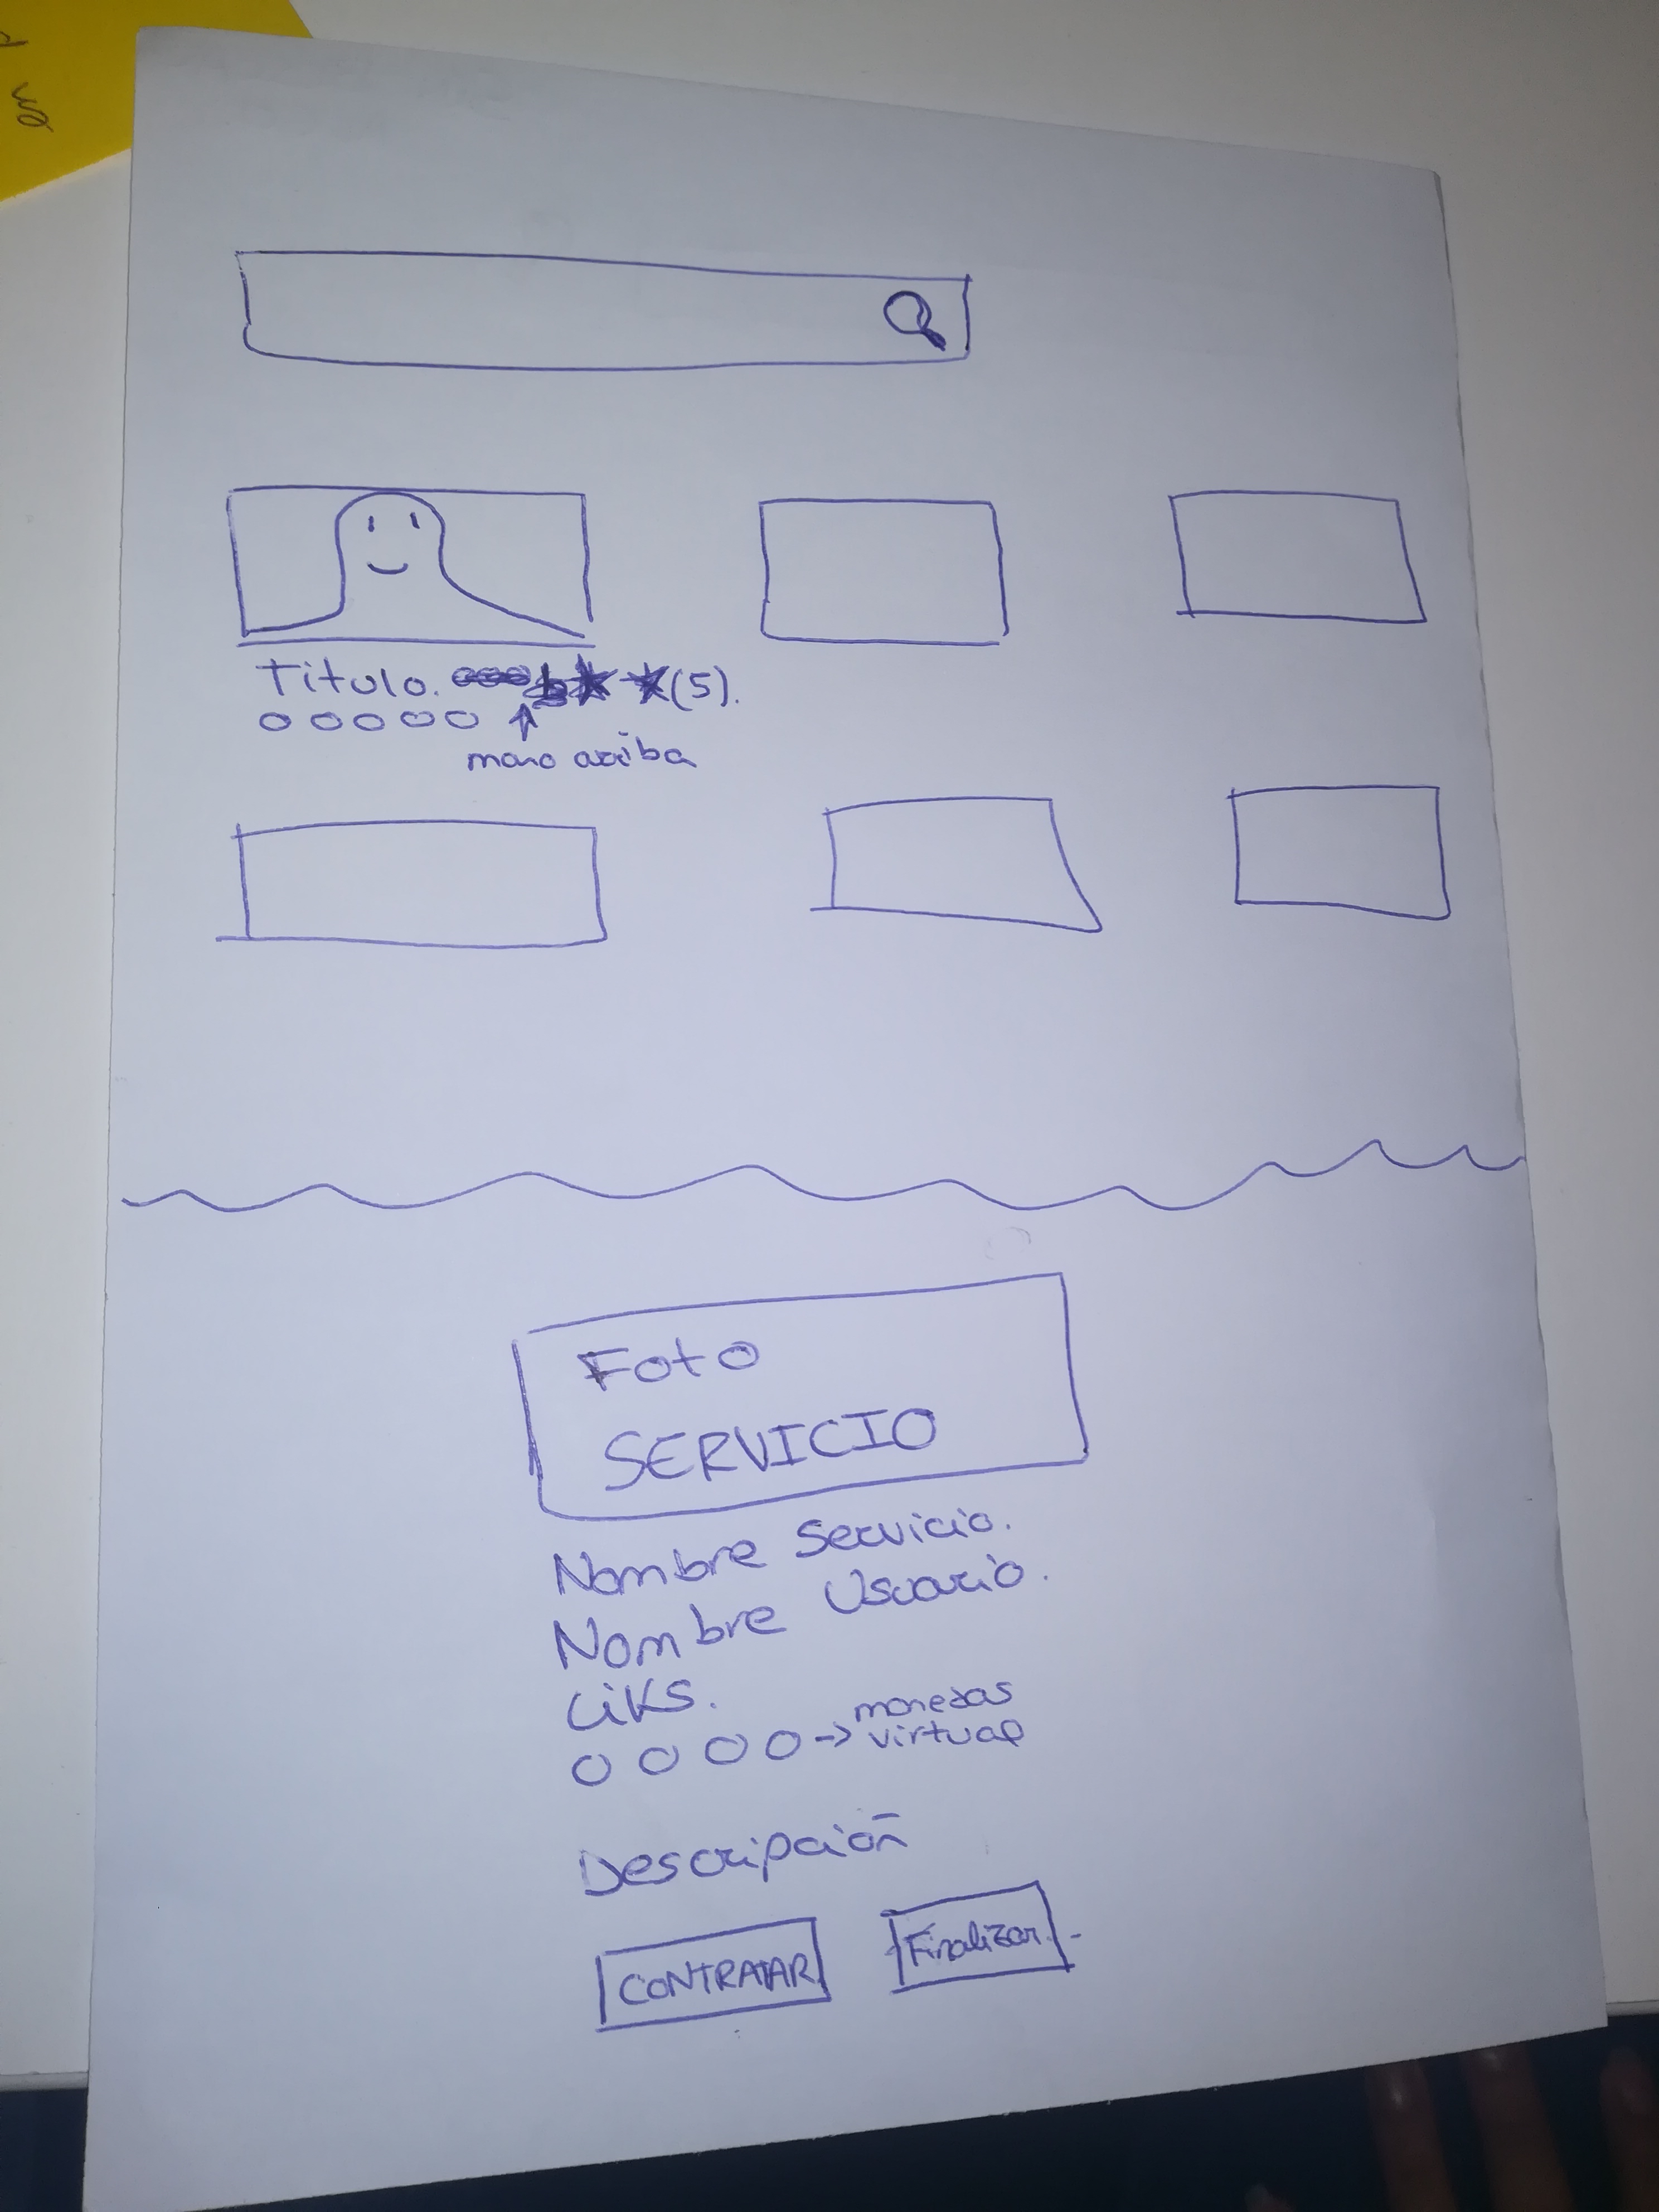 Titulo. (5).
mano arriba
Foto
SERVICIO
Nombre Servicio.
Nombre Usuario.
Liks.
-> monedas
virtual
Descripción
CONTRATAR
Finalizar.